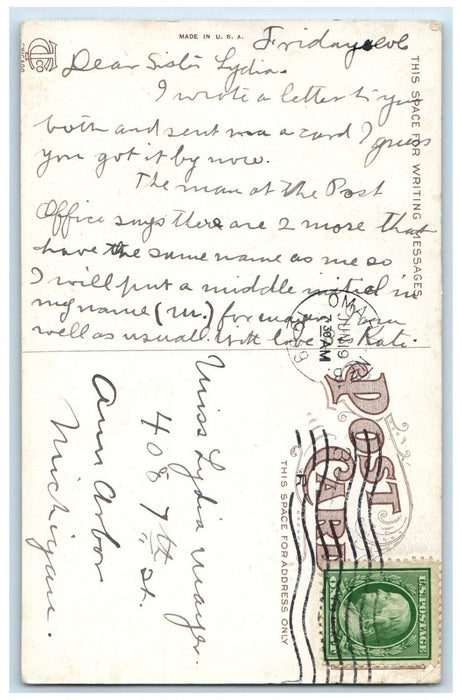 MADE IN U. S. A.
Friday eve
Dear Sister Lydia.
I wrote a letter to you
both and sent ma a card I guess
you got it by now.
The man at the Post
Office says there are 2 more that
have the same name as me so
I will put a middle initial in
my name (M.) for mayer. I am
well as usual. With love Kate.
THIS SPACE FOR WRITING MESSAGES
OMAHA
JUN 19
7.30 AM
POST CARD
THIS SPACE FOR ADDRESS ONLY
Miss Lydia Mayer.
408 7th St.
Ann Arbor
Michigan.
U.S. POSTAGE